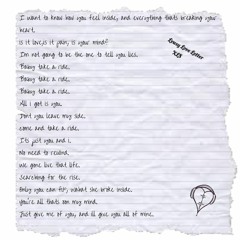 I want to know how you feel inside, and everything thats breaking your
heart,
is it love,is it pain, is your mind?
I'm not going to be the one to tell you lies.
Baby take a ride,
Baby take a ride,
Baby take a ride,
All i got is you.
Dont you leave my side,
come and take a ride.
Its just you and i,
No need to rewind,
We gone live that life.
Searching for the rise,
Only you can fix, whaat she broke inside.
you're all thats on my mind,
Just give me of you, and ill give you all of mine.
Every Love Letter